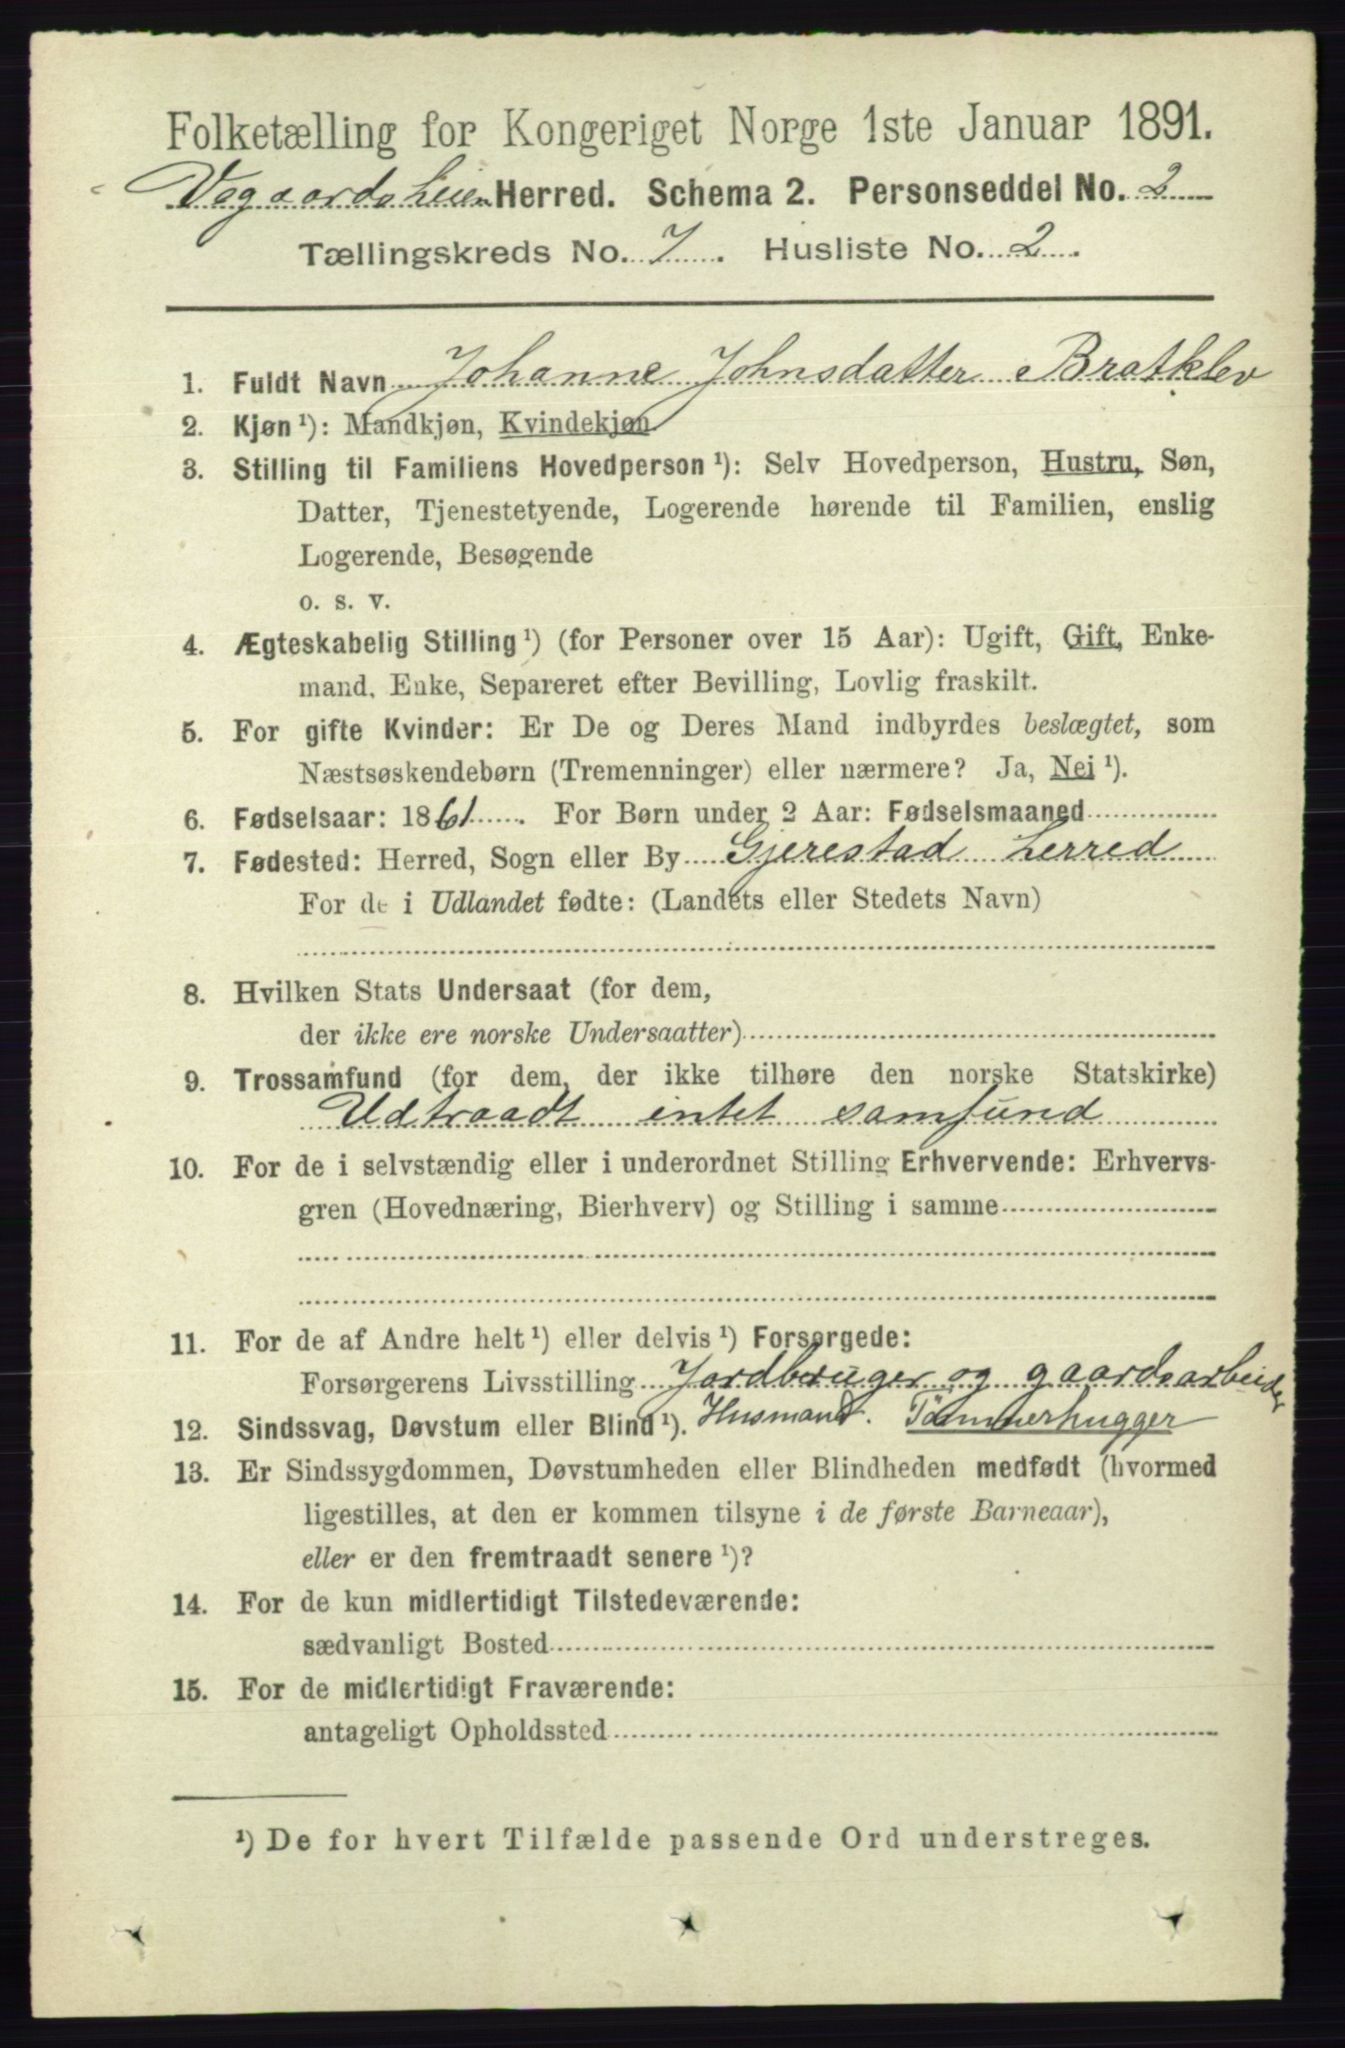 Folketælling for Kongeriget Norge 1ste Januar 1891.
Vegaardsheien Herred. Schema 2. Personseddel No. 2
Tællingskreds No. 7. Husliste No. 2.
1. Fuldt Navn Johanne Johnsdatter Bratklev
2. Kjøn ¹): Mandkjøn, Kvindekjøn
3. Stilling til Familiens Hovedperson ¹): Selv Hovedperson, Hustru, Søn,
Datter, Tjenestetyende, Logerende hørende til Familien, enslig
Logerende, Besøgende
o. s. v.
4. Ægteskabelig Stilling ¹) (for Personer over 15 Aar): Ugift, Gift, Enke-
mand, Enke, Separeret efter Bevilling, Lovlig fraskilt.
5. For gifte Kvinder: Er De og Deres Mand indbyrdes beslægtet, som
Næstsøskendebørn (Tremenninger) eller nærmere? Ja, Nei ¹).
6. Fødselsaar: 1861. For Børn under 2 Aar: Fødselsmaaned
7. Fødested: Herred, Sogn eller By Gjerestad Herred
For de i Udlandet fødte: (Landets eller Stedets Navn)
8. Hvilken Stats Undersaat (for dem,
der ikke ere norske Undersaatter)
9. Trossamfund (for dem, der ikke tilhøre den norske Statskirke)
Udtraadt intet samfund
10. For de i selvstændig eller i underordnet Stilling Erhvervende: Erhvervs-
gren (Hovednæring, Bierhverv) og Stilling i samme
11. For de af Andre helt ¹) eller delvis ¹) Forsørgede:
Forsørgerens Livsstilling Jordbruger og gaardsarbeider
12. Sindssvag, Døvstum eller Blind ¹). Husmand. Tømmerhugger
13. Er Sindssygdommen, Døvstumheden eller Blindheden medfødt (hvormed
ligestilles, at den er kommen tilsyne i de første Barneaar),
eller er den fremtraadt senere ¹)?
14. For de kun midlertidigt Tilstedeværende:
sædvanligt Bosted
15. For de midlertidigt Fraværende:
antageligt Opholdssted
¹) De for hvert Tilfælde passende Ord understreges.